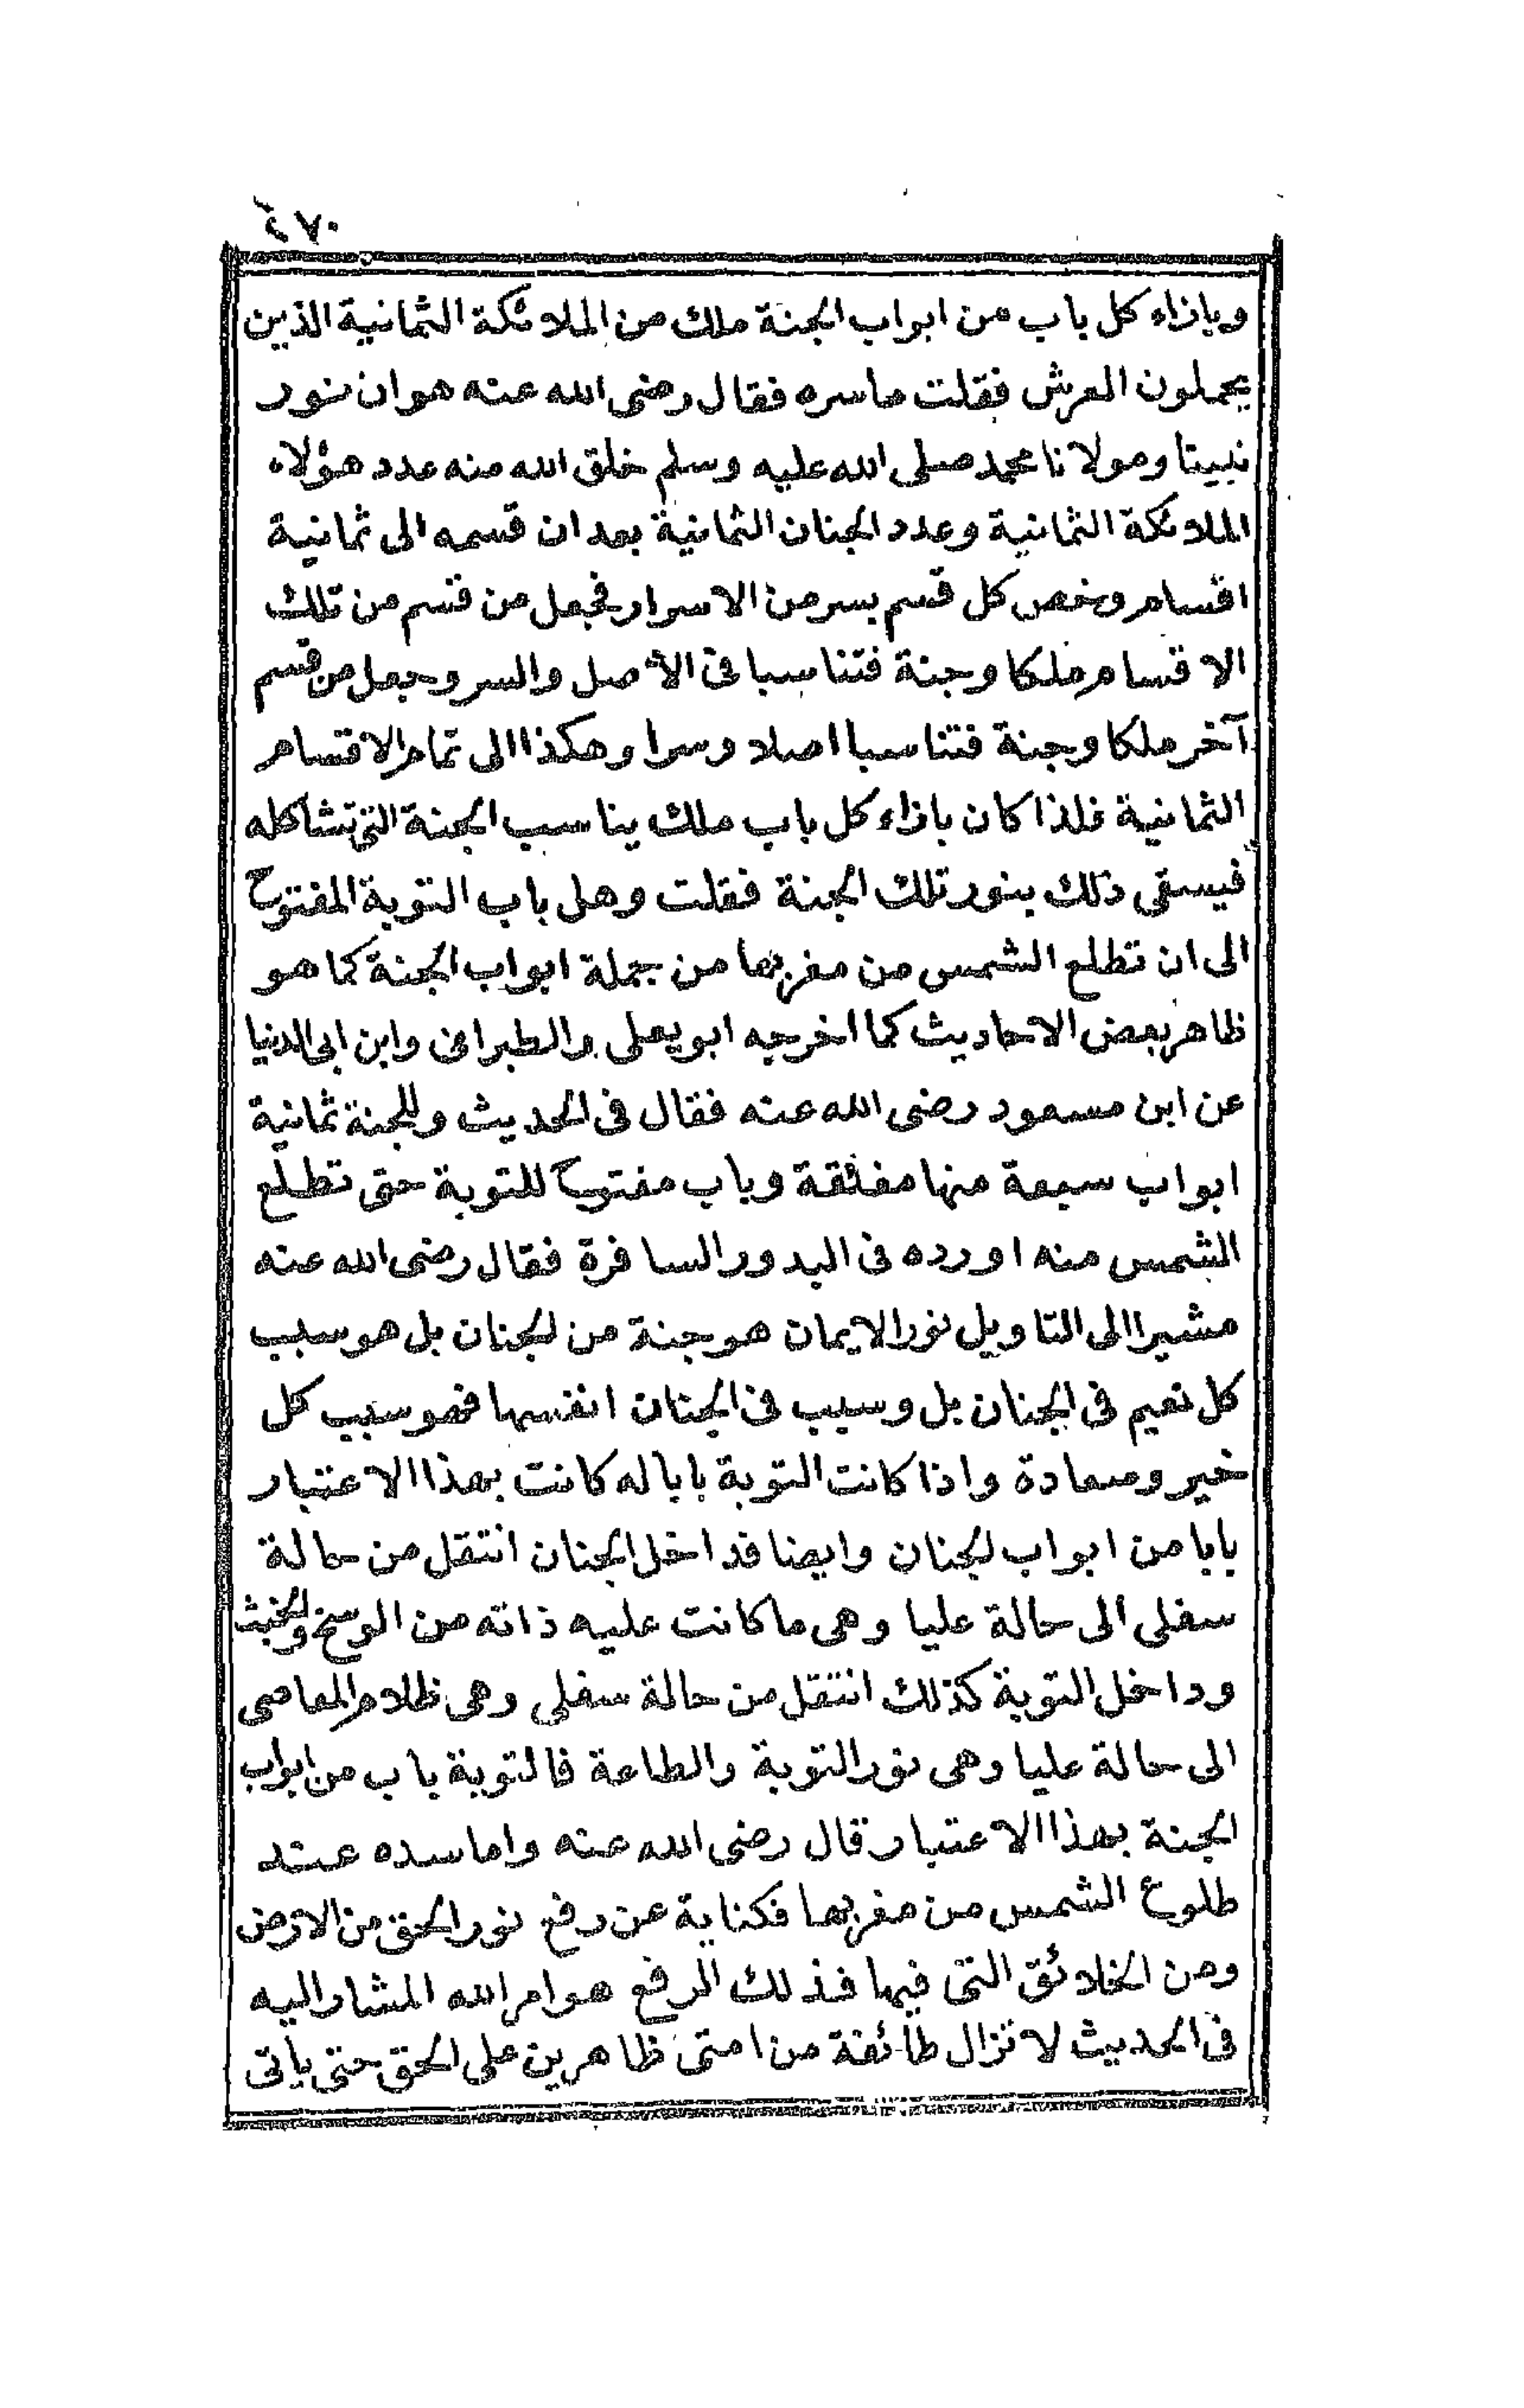 ٤٧٠
وبازاء كل باب من ابواب الجنة ملك من الملائكة الثمانية الذين
يحملون العرش فقلت ماسره فقال رضى الله عنه هو ان نور
نبينا ومولانا محمد صلى الله عليه وسلم خلق الله منه عدد هؤلاء
الملائكة الثمانية وعدد الجنان الثمانية بعد ان قسمه الى ثمانية
اقسام وخص كل قسم بسر من الاسرار فجعل من قسم من تلك
الاقسام ملكا وجنة فتناسبا فى الأصل والسر وجعل من قسم
آخر ملكا وجنة فتناسبا اصلا وسرا وهكذا الى تمام الاقسام
الثمانية فلذا كان بازاء كل باب ملك يناسب الجنة التى تشاكله
فيسقى ذلك بنور تلك الجنة فقلت وهل باب التوبة المفتوح
الى ان تطلع الشمس من مغربها من جملة ابواب الجنة كما هو
ظاهر بعض الاحاديث كما اخرجه ابو يعلى والطبرانى وابن ابى الدنيا
عن ابن مسعود رضى الله عنه فقال فى الحديث وللجنة ثمانية
ابواب سبعة منها مغلقة وباب مفتوح للتوبة حتى تطلع
الشمس منه اورده فى البدور السافرة فقال رضى الله عنه
مشيرا الى التاويل نور الايمان هو جنة من الجنان بل هو سبب
كل نعيم فى الجنان بل وسبب فى الجنان انفسها فهو سبب كل
خير وسعادة واذا كانت التوبة بابا له كانت بهذا الاعتبار
بابا من ابواب الجنان وايضا فداخل الجنان انتقل من حالة
سفلى الى حالة عليا وهى ما كانت عليه ذاته من الوسخ والخبث
وداخل التوبة كذلك انتقل من حالة سفلى وهى ظلام المعاصى
الى حالة عليا وهى نور التوبة والطاعة فالتوبة باب من ابواب
الجنة بهذا الاعتبار قال رضى الله عنه واما سده عند
طلوع الشمس من مغربها فكناية عن رفع نور الحق من الارض
ومن الخلائق التى فيها فذلك الرفع هو امر الله المشار اليه
فى الحديث لا تزال طائفة من امتى ظاهرين على الحق حتى يأتى